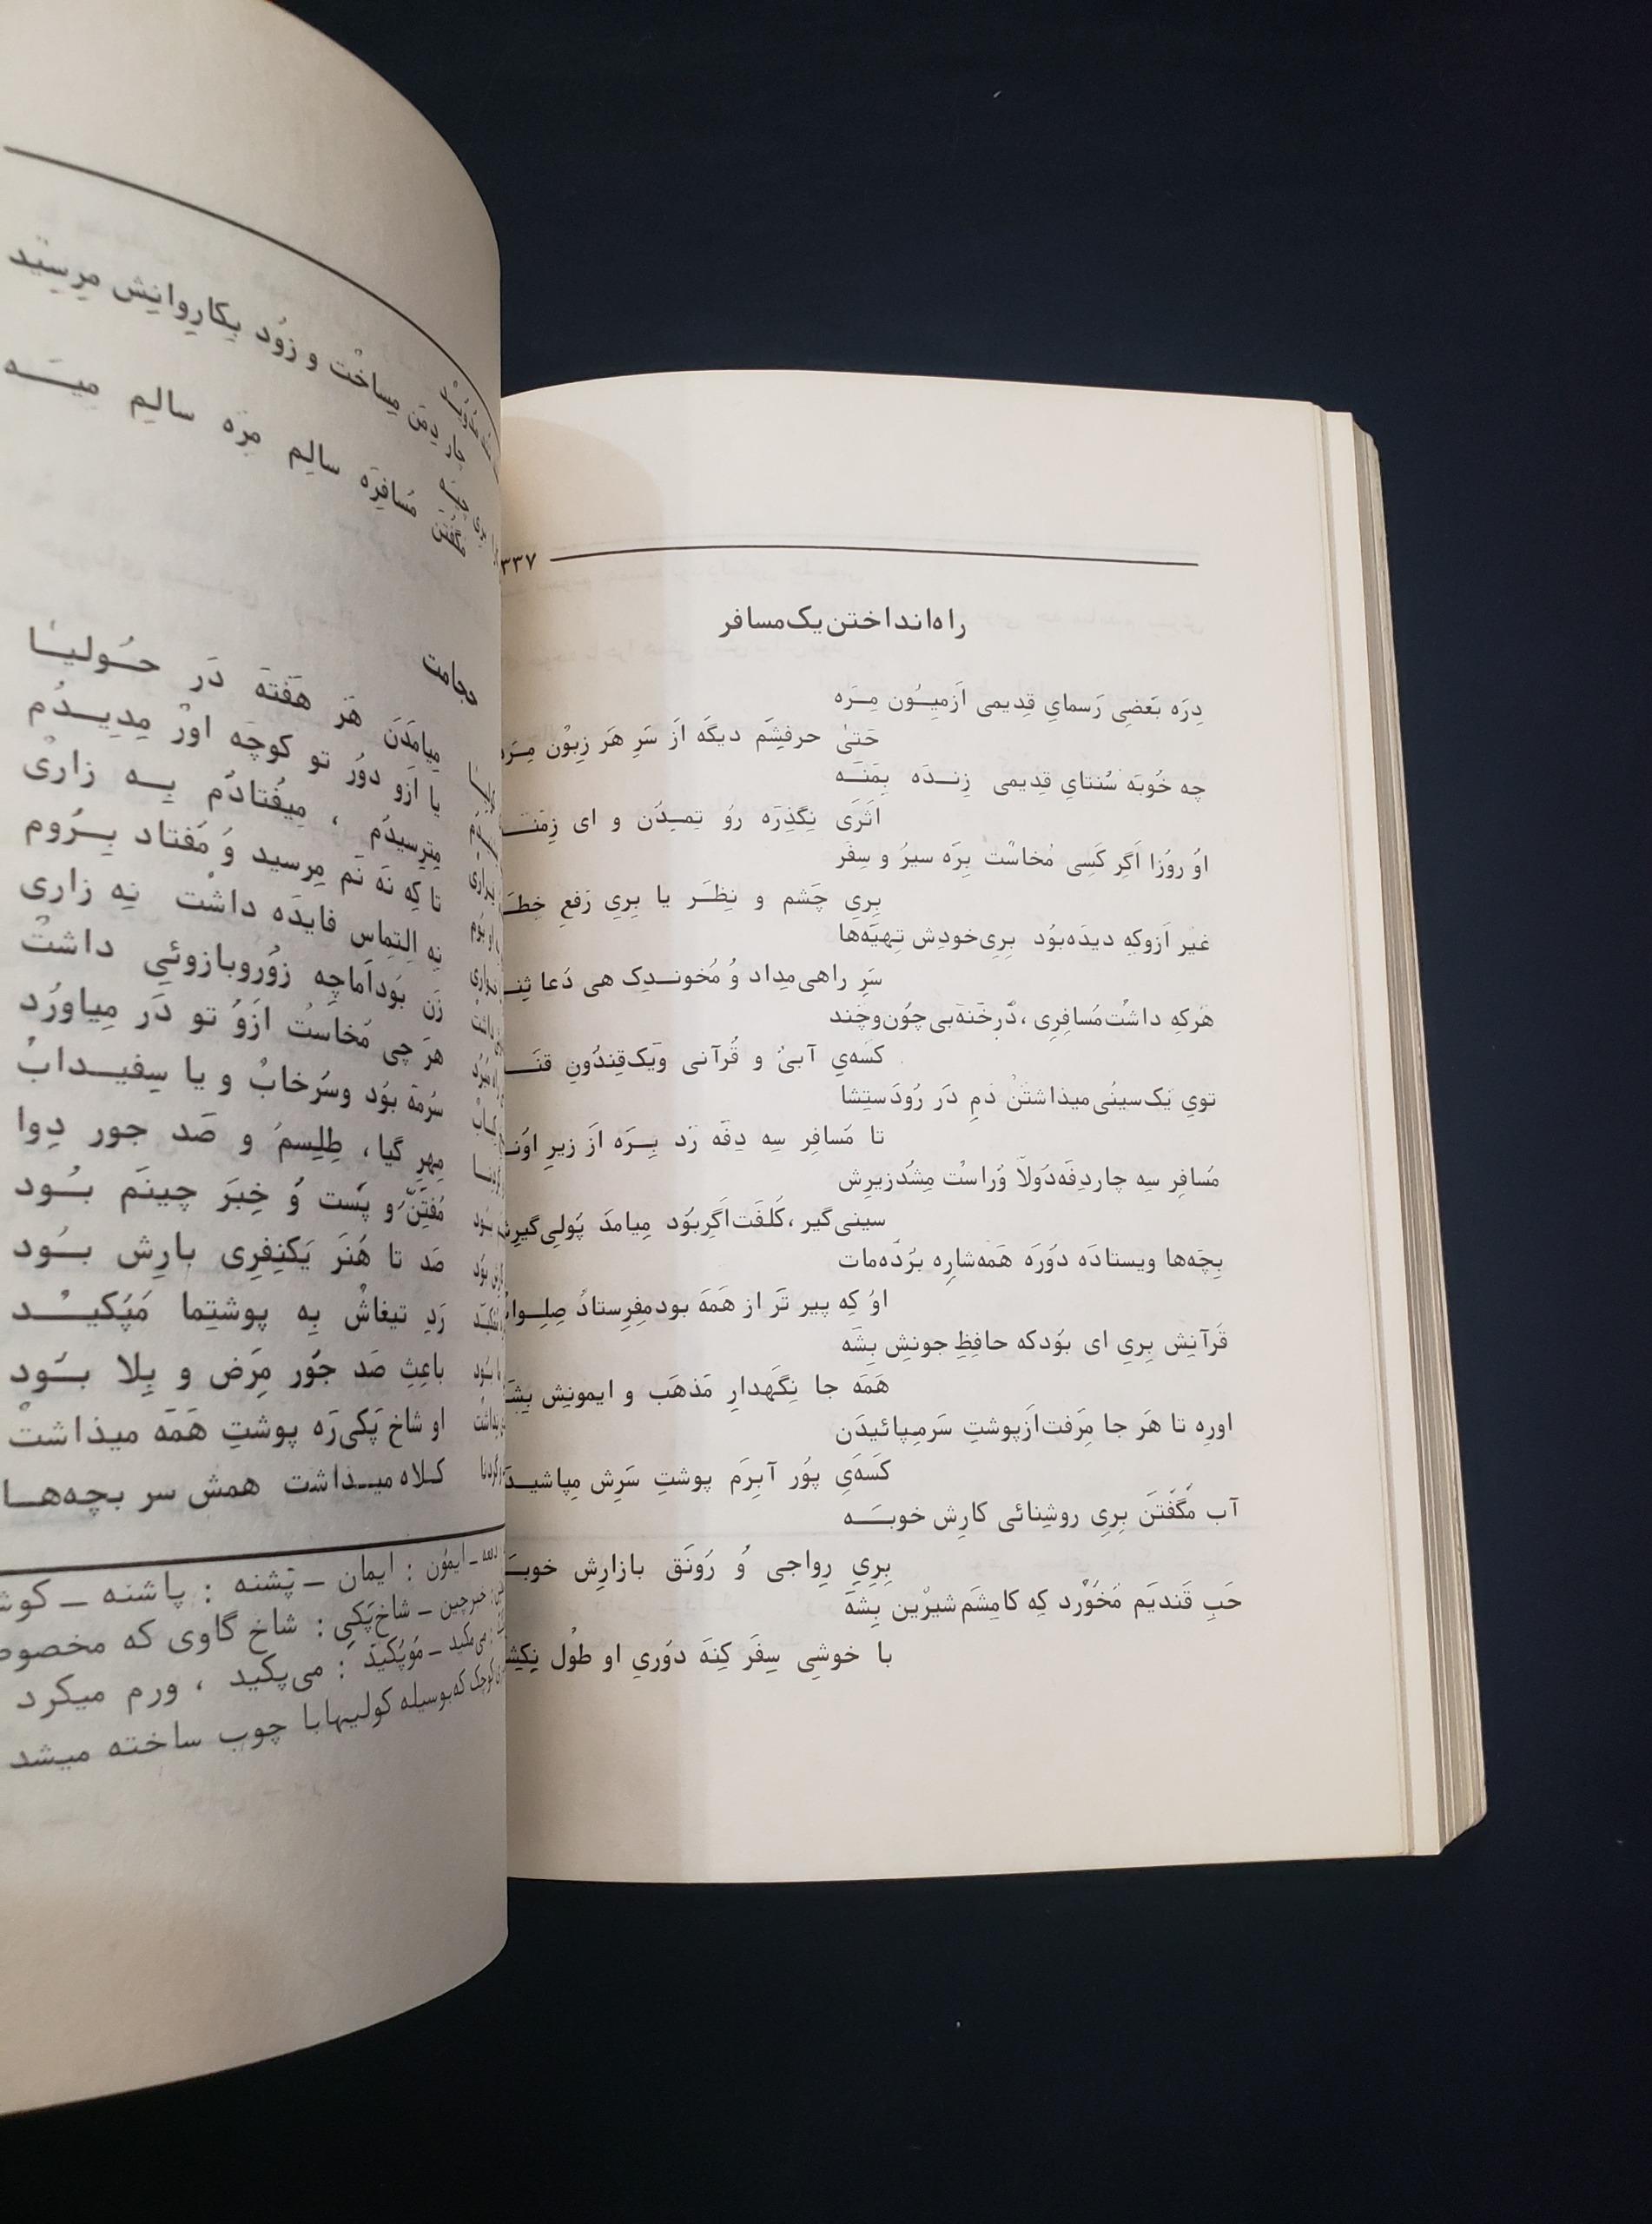 ۳۳۷
راه‌انداختن یک مسافر
دِرَه بَعضِی رَسمایِ قِدیمی اَزمیِوُن مِرَه
حَتیٰ حرفِشَم دیگَه اَز سَرِ هَر زِبوُن مِرَه
چه خُوبَه سُنتایِ قِدیمی زِنـدَه بِمَنَه
اَثَرَی نِگذِرَه روُ تِمـِدُن و ای
اوُ روُزا اَگِر کَسِی مُخاسْت بِرَه سیرُ و سِفَر
بِریِ چَشم و نِظَـر یا بِریِ رَفعِ
غیْر اَزوکِه دیدَه‌بوُد بِریِ‌خودِش تِهیَه‌ها
سَرِ راهی مِداد وُ مُخونـدِک هی دُعا
هَرکِه داشْت مُسافِرِی ، دَرِخَنَهٔ بی‌چوُن‌وچَند
کَسَه‌یِ آبیُ و قُرآنی وَیک‌قِندُونِ
تویِ یَک‌سینُی میذاشتَنْ دَمِ دَر رُودَستِشا
تا مُسافِر سِه دِفَه رَد بِـرَه اَز زیرِ
مُسافِر سِه چاردِفَه‌دَولاّ وُراسْت مِشُدزیرِش
سینی‌گیر ، کُلفَت اَگِربوُد مِیامَدَ پُولِی‌گیرِش
بِچَه‌ها ویستادَه دَوُرَه هَمَه‌شارِه بُردَه‌مات
اوُ کِه پیر تَر از هَمَه بودمفِرِستادَ
قَرآنِش بِریِ ای بوُدکه حافِظِ جونِش بِشَه
هَمَه جا نِگَهدارِ مَذهَب و ایمونِش بِشَه
اورِه تا هَر جا مِرَفت‌اَزپوشتِ سَرمِپائیدَن
کَسَه‌یِ پوُر آبِرَم پوشتِ سَرِش
آب مُگُفتَن بِریِ روشِنائی کارِش خوبَـه
بِریِ رِواجی وُ رُونَق بازارِش خوبَـه
حَبِ قَندیَم مُخَوُرد کِه کامِشَم شیرْین بِشَهَ
با خوشیِ سِفَر کِنَه دوُریِ او طوُل
چار دِمَن مِساخْت و زوُد بِکارِوانِش مِرِسِیَد
مُگُفتَن مُسافِرَه سالِم مِرَه سالِم میـَـه
حجامت
مِیامَدَن هَر هَفتَه دَر حـُـولیـا
یا اَزو دوُر تو کوچَه اورْ مِدِیـدُم
مِترِسیدُم ، مِیفُتادُم بِـه زاری
تا کِه نَه نَم مِرسید وُ مُفتاد بِـرُوم
نِه اِلتِماس فایدَه داشْت نِه زاری
زَن بوُداَماچِه زوُروبازوئیِ داشْت
هرَ چی مُخاسْت اَزوُ تو دَر مِیاوُرد
سُرمَهٔ بوُد وسُرخابْ و یا سِفیـدابْ
مِهرِ گیا، طِلِسمُ و صَد جور دِوا
مُفتِنَّ و پَست وُ خِبَر چینَم بـُـود
صَد تا هُنَر یَکنِفِرِی بارِش بـُـود
رَدِ تیغاشْ بِه پوشتِما مَپُکیـد
باعِثِ صَد جوُر مِرَض و بِلا بـوُد
او شاخ پَکی‌رَه پوشتِ هَمَه میذاشتْ
کلاه میـذاشت همش سر بچه‌هـا
ایموُن : ایمان ــ پَشنه : پاشنه ــ
خبرچین ــ شاخ‌پَکی : شاخ گاوی که
می‌مکید ــ مُوپُکیدَ : می‌پکید ، ورم میکرد
کوچک که‌بوسیله کولیهابا چوب ساخته میشد